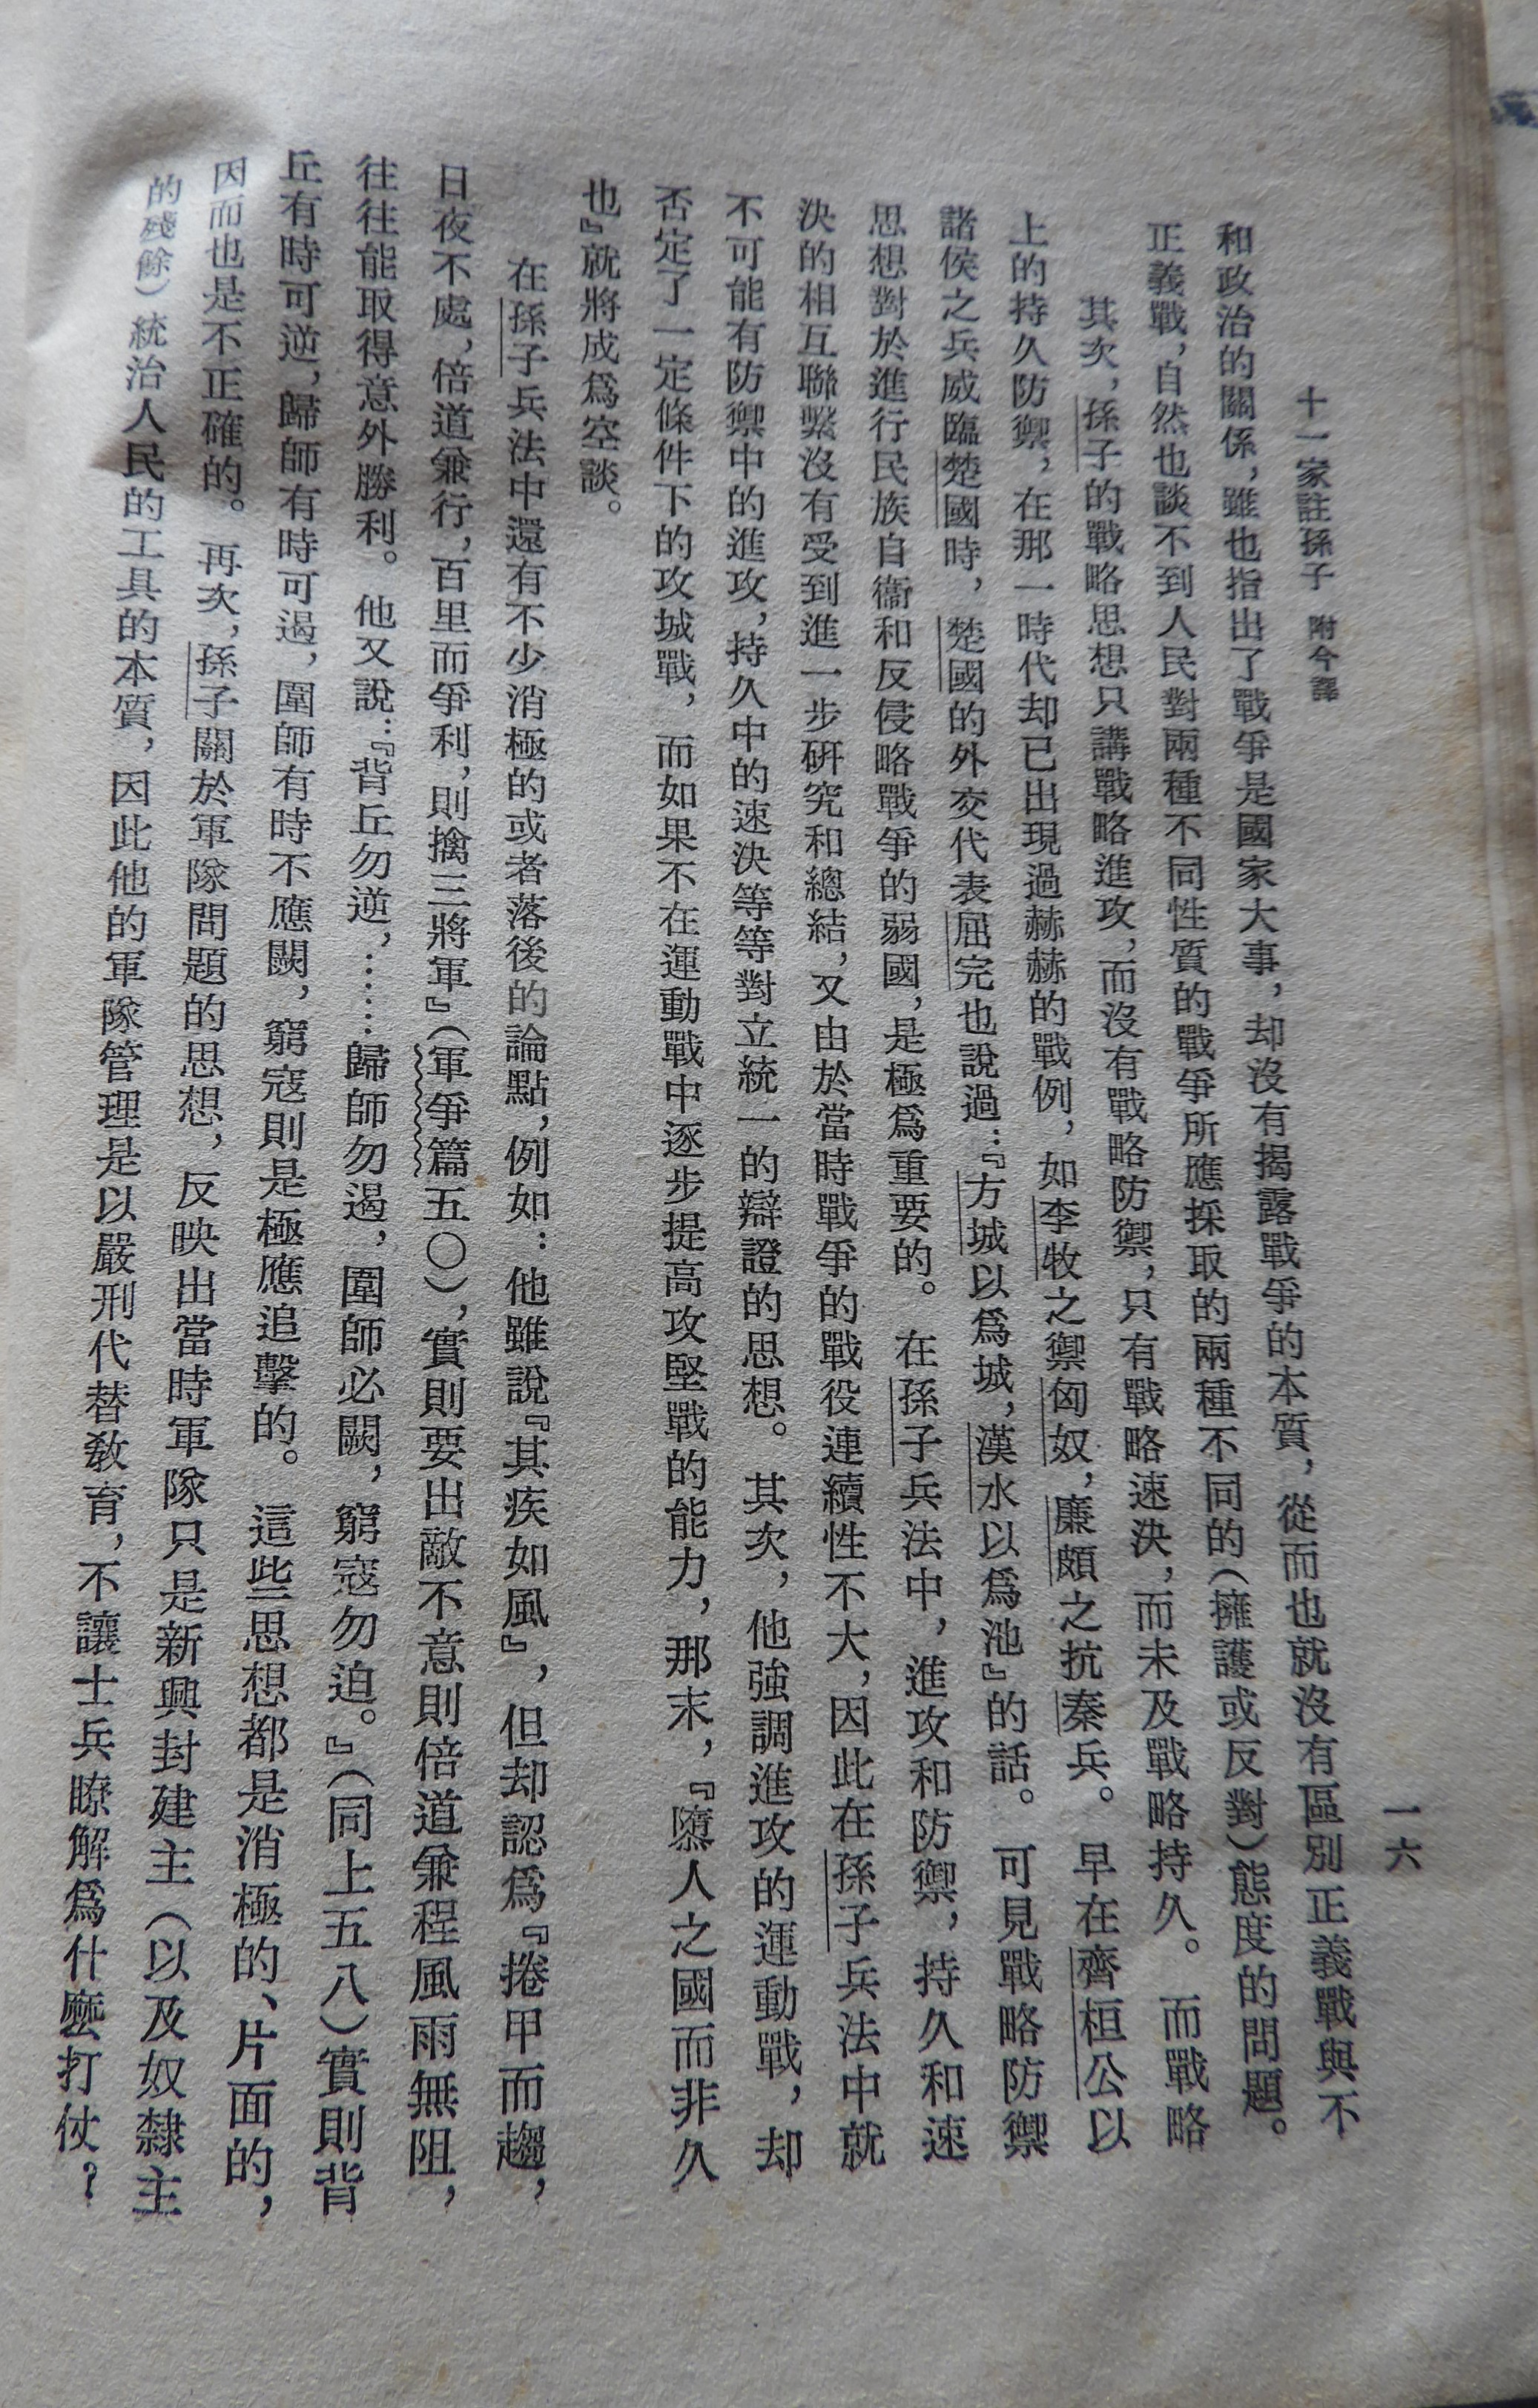 十一家註孫子 附今譯
一六
和政治的關係，雖也指出了戰爭是國家大事，却沒有揭露戰爭的本質，從而也就沒有區別正義戰與不
正義戰，自然也談不到人民對兩種不同性質的戰爭所應採取的兩種不同的（擁護或反對）態度的問題。
其次，孫子的戰略思想只講戰略進攻，而沒有戰略防禦，只有戰略速決，而未及戰略持久。而戰略
上的持久防禦，在那一時代却已出現過赫赫的戰例，如李牧之禦匈奴，廉頗之抗秦兵。早在齊桓公以
諸侯之兵威臨楚國時，楚國的外交代表屈完也說過：『方城以爲城，漢水以爲池』的話。可見戰略防禦
思想對於進行民族自衞和反侵略戰爭的弱國，是極爲重要的。在孫子兵法中，進攻和防禦，持久和速
決的相互聯繫沒有受到進一步研究和總結，又由於當時戰爭的戰役連續性不大，因此在孫子兵法中就
不可能有防禦中的進攻，持久中的速決等等對立統一的辯證的思想。其次，他強調進攻的運動戰，却
否定了一定條件下的攻城戰，而如果不在運動戰中逐步提高攻堅戰的能力，那末，『隳人之國而非久
也』就將成爲空談。
在孫子兵法中還有不少消極的或者落後的論點，例如：他雖說『其疾如風』，但却認爲『捲甲而趨，
日夜不處，倍道兼行，百里而爭利，則擒三將軍』（軍爭篇五〇），實則要出敵不意則倍道兼程風雨無阻，
往往能取得意外勝利。他又說：『背丘勿逆，……歸師勿遏，圍師必闕，窮寇勿迫。』（同上五八）實則背
丘有時可逆，歸師有時可遏，圍師有時不應闕，窮寇則是極應追擊的。這些思想都是消極的、片面的，
因而也是不正確的。再次，孫子關於軍隊問題的思想，反映出當時軍隊只是新興封建主（以及奴隸主
的殘餘）統治人民的工具的本質，因此他的軍隊管理是以嚴刑代替敎育，不讓士兵瞭解爲什麼打仗？